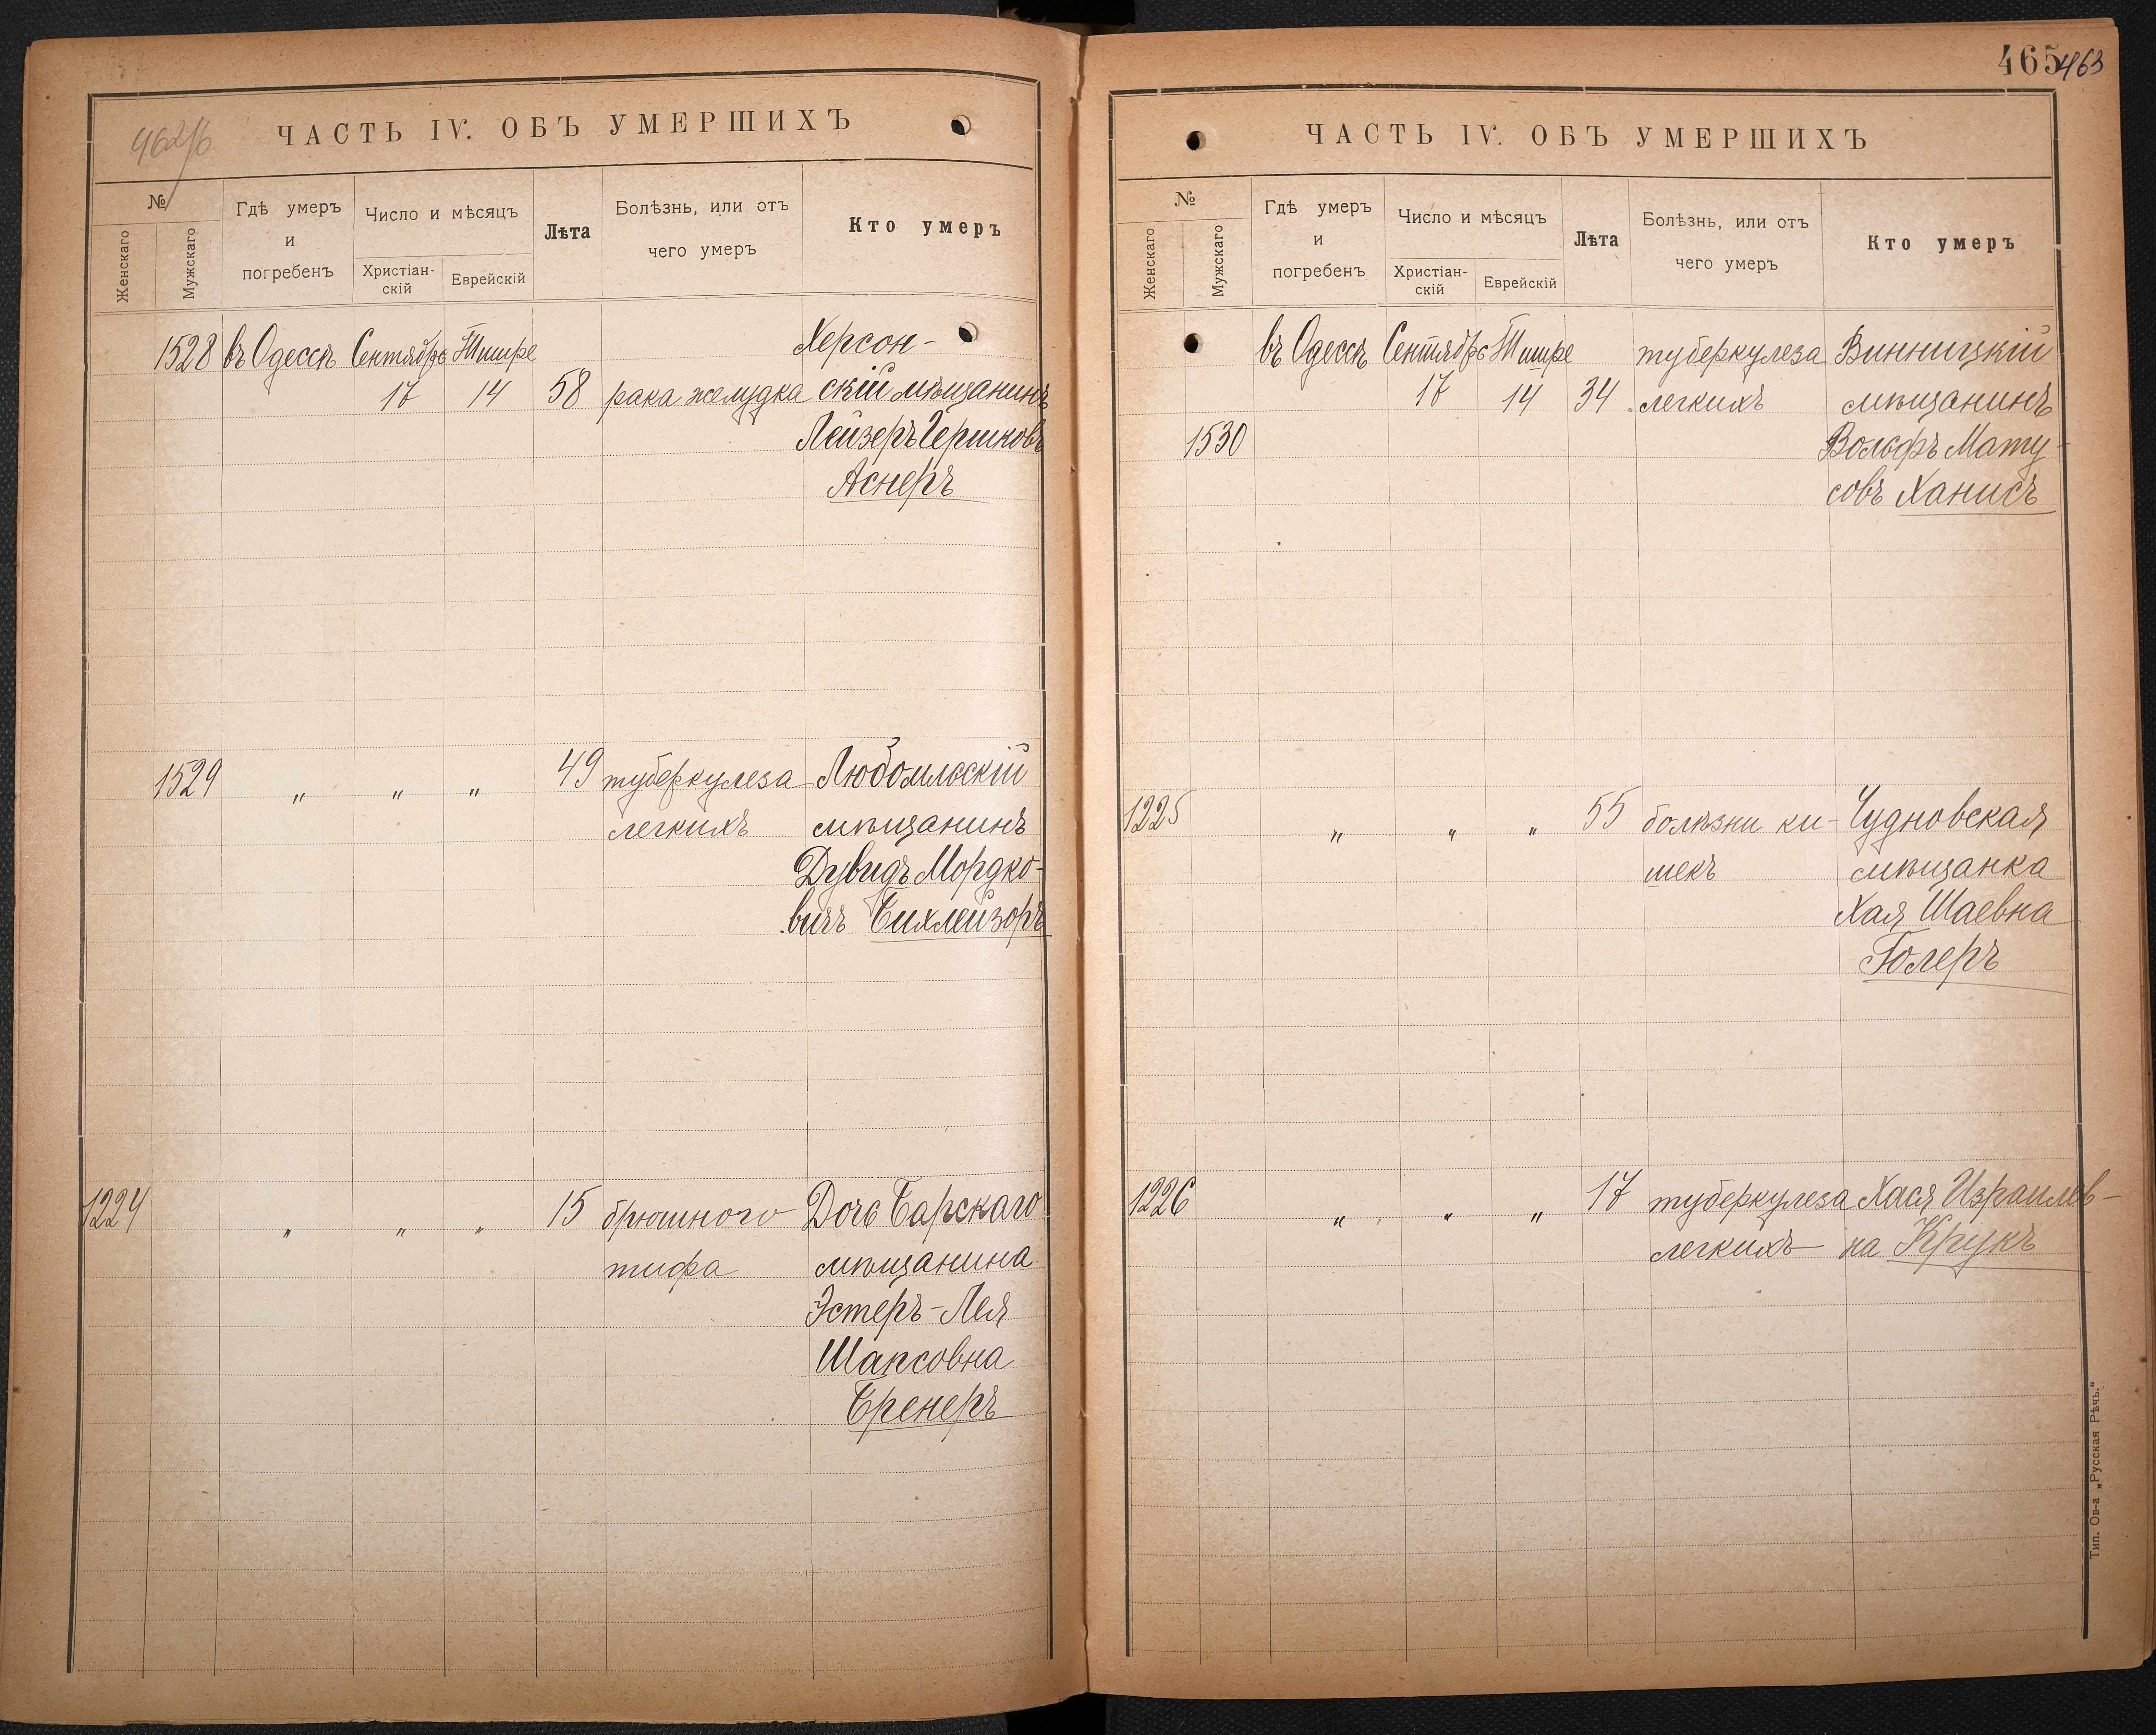 462об
ЧАСТЬ IV. ОБЪ УМЕРШИХЪ
№
Женскаго
Мужскаго
Гдѣ умеръ
и
погребенъ
Число и мѣсяцъ
Христіан-
скій
Еврейскій
Лѣта
Болѣзнь, или отъ
чего умеръ
Кто умеръ
1528 въ Одессѣ Сентябрь Тишре Херсон-
17 14 58 рака желудка скій мѣщанинъ
Лейзеръ Гершковъ
Аснеръ
1529 " " " 49 туберкулеза Любомльскій
легкихъ мѣщанинъ
Дувидъ Мордко-
вичъ Бихлейзоръ
1224 " " " 15 брюшного Дочь Барскаго
тифа мѣщанина
Эстеръ-Лея
Шапсовна
Бренеръ
465 463
ЧАСТЬ IV. ОБЪ УМЕРШИХЪ
№
Женскаго
Мужскаго
Гдѣ умеръ
и
погребенъ
Число и мѣсяцъ
Христіан-
скій
Еврейскій
Лѣта
Болѣзнь, или отъ
чего умеръ
Кто умеръ
въ Одессѣ Сентябрь Тишре туберкулеза Винницкій
17 14 34 легкихъ мѣщанинъ
1530 Вольфъ Мату-
совъ Ханисъ
1225 " " " 55 болѣзни ки- Чудновская
шекъ мѣщанка
Хая Шаевна
Голеръ
1226 " " " 17 туберкулеза Хася Израилев-
легкихъ на Крукъ
Тип. Ов-а „Русская Рѣчь.“